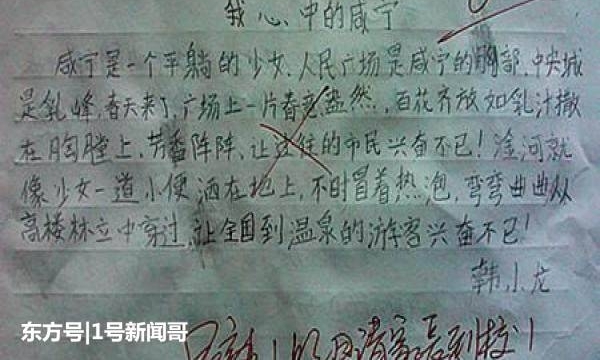 我心中的咸宁
咸宁是一个平躺的少女、人民广场是咸宁的胸部、中央城
是乳峰,春天来了,广场上一片春意盎然,百花齐放如乳汁撒
在胸膛上、芳香阵阵、让过往的市民兴奋不已!淦河就
像少女一道小便洒在地上,不时冒着热泡,弯弯曲曲从
高楼林立中穿过,让全国到温泉的游客兴奋不已!
韩小龙
请家长到校!
东方号|1号新闻哥